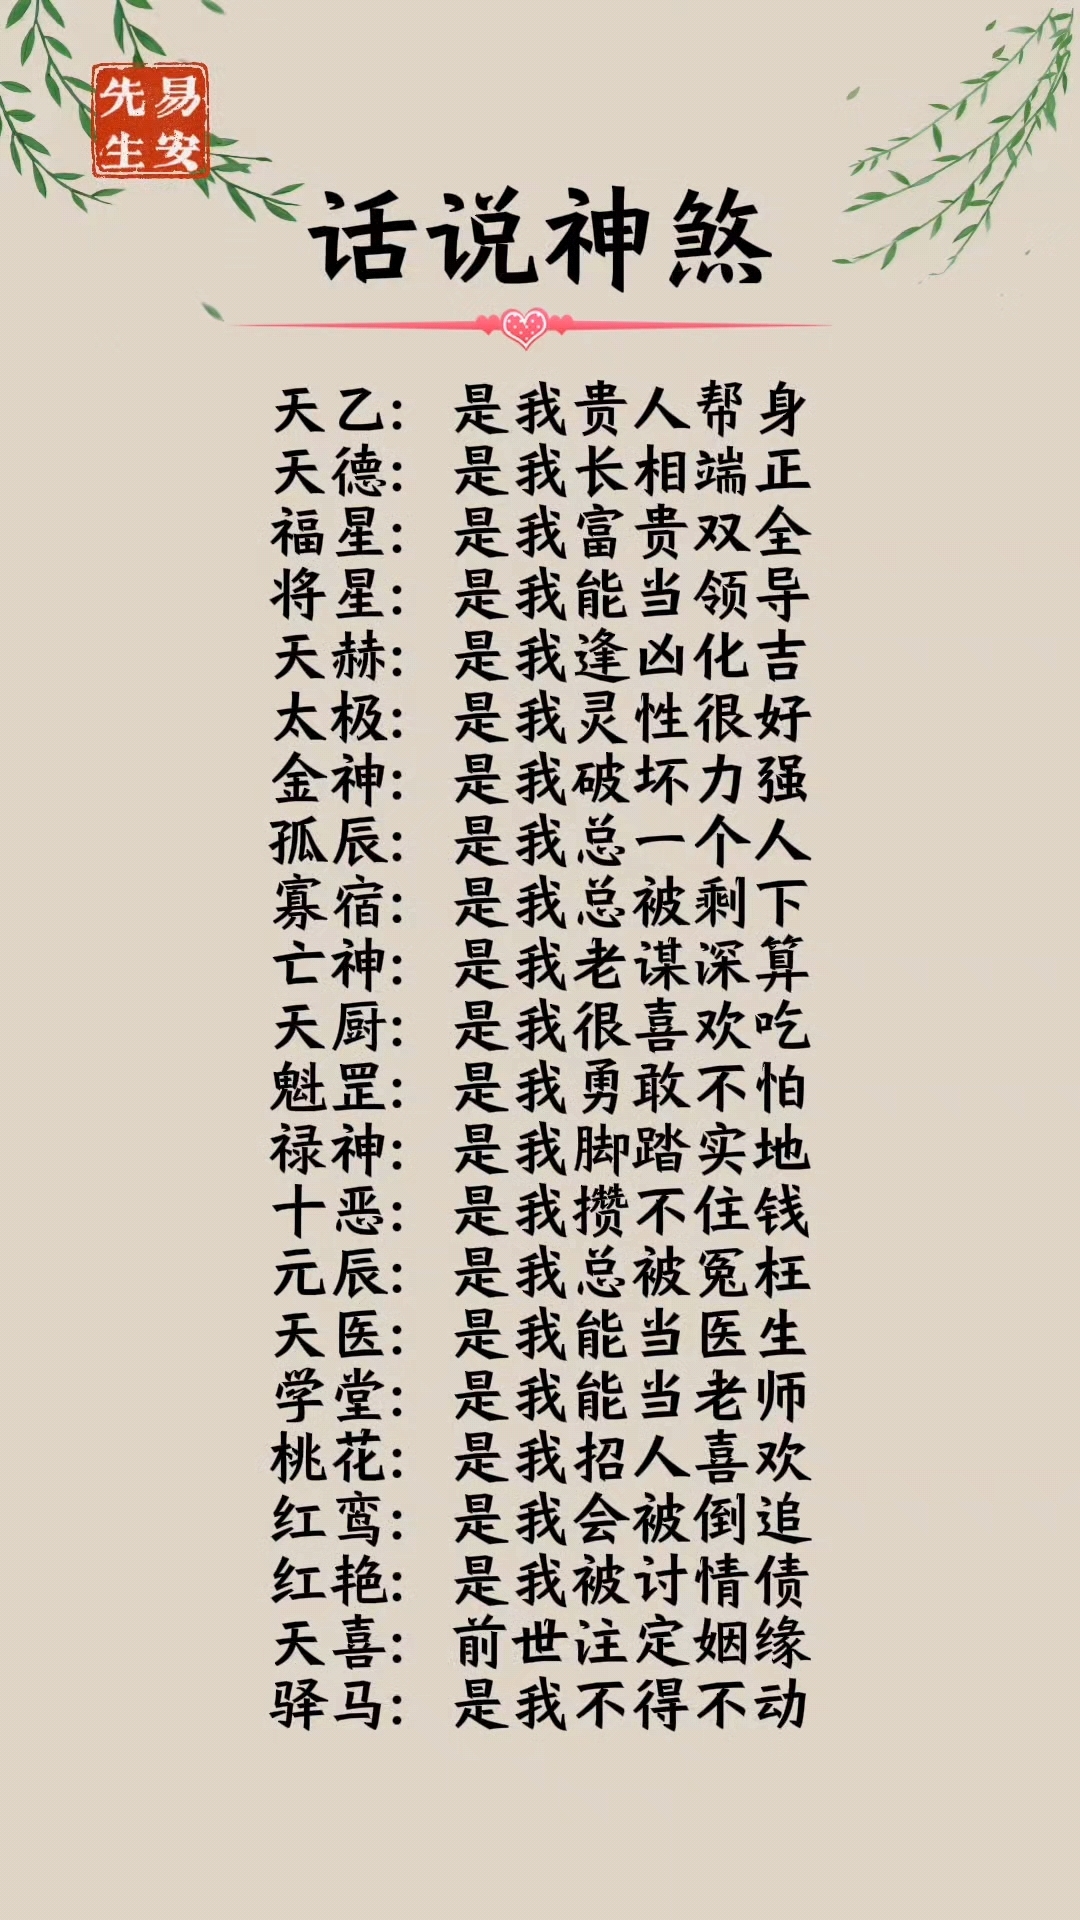 易安
先生
话说神煞
天乙： 是我贵人帮身
天德： 是我长相端正
福星： 是我富贵双全
将星： 是我能当领导
天赫： 是我逢凶化吉
太极： 是我灵性很好
金神： 是我破坏力强
孤辰： 是我总一个人
寡宿： 是我总被剩下
亡神： 是我老谋深算
天厨： 是我很喜欢吃
魁罡： 是我勇敢不怕
禄神： 是我脚踏实地
十恶： 是我攒不住钱
元辰： 是我总被冤枉
天医： 是我能当医生
学堂： 是我能当老师
桃花： 是我招人喜欢
红鸾： 是我会被倒追
红艳： 是我被讨情债
天喜： 前世注定姻缘
驿马： 是我不得不动